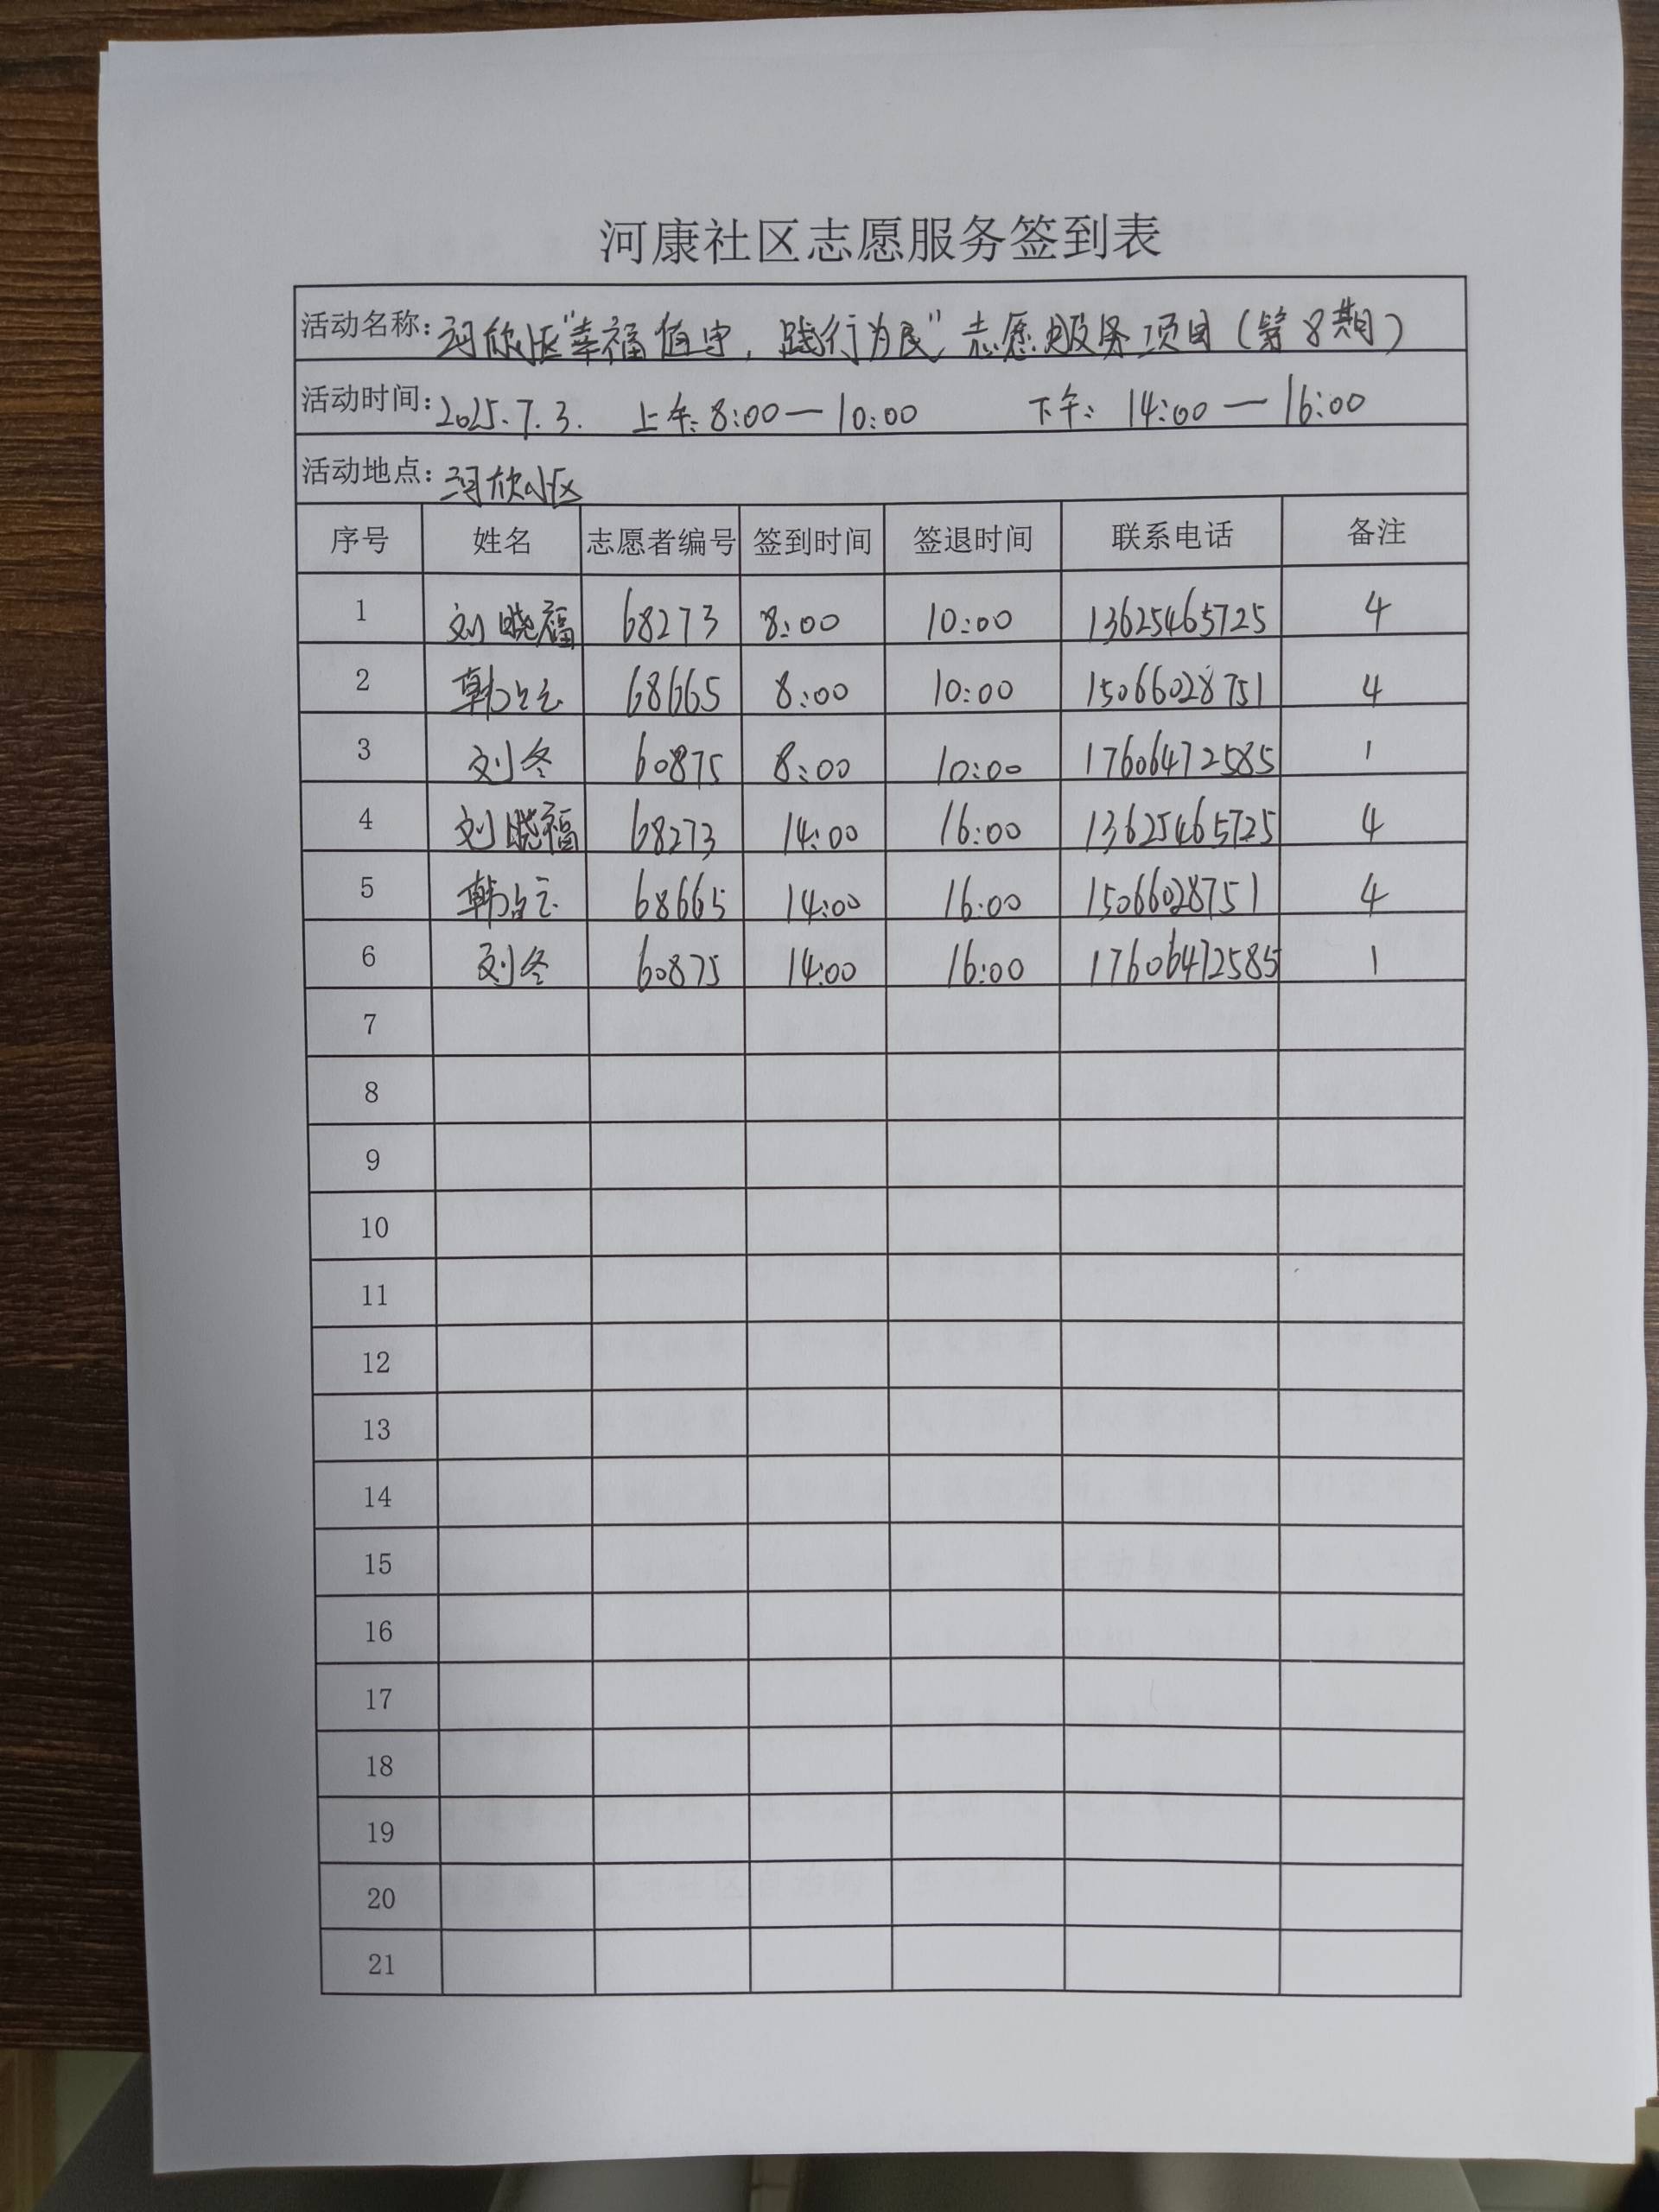 河康社区志愿服务签到表
活动名称: 河欣小区"幸福值守,践行为民"志愿服务项目(第8期)
活动时间: 2025.7.3. 上午: 8:00—10:00 下午: 14:00—16:00
活动地点: 河欣小区
序号 姓名 志愿者编号 签到时间 签退时间 联系电话 备注
1 刘晓福 68273 8:00 10:00 13625465725 4
2 韩占云 68665 8:00 10:00 15066028751 4
3 刘冬 60875 8:00 10:00 17606472585 1
4 刘晓福 68273 14:00 16:00 13625465725 4
5 韩占云 68665 14:00 16:00 15066028751 4
6 刘冬 60875 14:00 16:00 17606472585 1
7
8
9
10
11
12
13
14
15
16
17
18
19
20
21